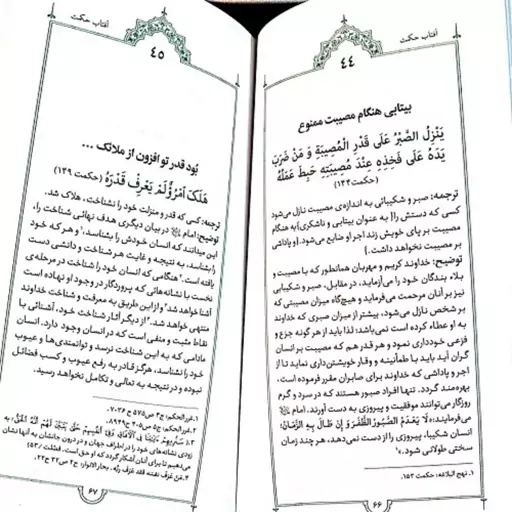 آفتاب حکمت
٤٤
بیتابی هنگام مصیبت ممنوع
يَنْزِلُ الصَّبْرُ عَلَى قَدْرِ الْمُصِيبَةِ وَ مَنْ ضَرَبَ
يَدَهُ عَلَى فَخِذِهِ عِنْدَ مُصِيبَتِهِ حَبِطَ عَمَلُهُ
(حکمت۱۴۴)
ترجمه: صبر و شکیبائی به اندازه‌ی مصیبت نازل می‌شود
کسی که دستش را [به عنوان بیتابی و ناشکری] به هنگام
مصیبت بر پای خویش زند اجر او ضایع می‌شود. [و پاداشی
بر مصیبت نخواهد داشت.]
توضیح: خداوند کریم و مهربان همانطور که با مصیبت و
بلاء بندگان خود را می‌آزماید، در مقابل، صبر و شکیبایی
نیز بر آنان مرحمت می‌فرماید و هیچ‌گاه میزان مصیبتی که
بر شخص نازل می‌شود، بیشتر از میزان صبری که خداوند
به او عطاء کرده است نمی‌باشد؛ لذا باید از هر گونه جزع و
فزعی خودداری نمود و هر قدر هم که مصیبت بر انسان
گران آید باید با طمأنینه و وقار خویشتن‌داری نماید تا از
اجر و پاداشی که خداوند برای صابران مقرر فرموده است،
بهره‌مند گردد. تنها افراد صبور هستند که در سرد و گرم
روزگار می‌توانند موفقیت و پیروزی به دست آورند. امام
می‌فرمایند: لَا يَعْدَمُ الصَّبُورُ الظَّفَرَ وَ إِنْ طَالَ بِهِ الزَّمَانُ؛
انسان شکیبا، پیروزی را از دست نمی‌دهد، هر چند زمان
سختی طولانی شود.»¹
۱. نهج البلاغه: حکمت ۱۵۳
۶۶
آفتاب حکمت
٤٥
بُود قدر تو افزون از ملائک ...
هَلَكَ امْرُؤٌ لَمْ يَعْرِفْ قَدْرَهُ (حکمت ۱۴۹)
ترجمه: کسی که قدر و منزلت خود را نشناخت، هلاک شد.
توضیح: امام در بیان دیگری هدف نهائی شناخت را،
این میدانند که انسان خودش را بشناسد،¹ و هر که خود
را بشناسد، به نتیجه و غایت هر شناخت و دانشی دست
یافته است.² هنگامی که انسان خود را شناخت در مرحله‌ی
نخست با نشانه‌هائی که پروردگار در وجود او نهاده است
آشنا خواهد شد³ و از این طریق به معرفت و شناخت خداوند
منتهی خواهد شد.⁴ از دیگر آثار شناخت خود، آشنائی با
نقاط مثبت و منفی است که در انسان وجود دارد. انسان
مادامی که به این شناخت نرسد و توانمندی‌ها و عیوب
خود را نشناسد، هرگز قادر به رفع عیوب و کسب فضائل
نبوده و در نتیجه به تعالی و تکامل نخواهد رسید.
۱. غررالحکم: ج۴ ص۵۷۵ ح۷۰۳۶
۲. غررالحکم: ج۵ ص۴۰۵ ح۸۹۴۹
۳. سَنُرِيهِمْ آيَاتِنَا فِي الْآفَاقِ وَ فِي أَنْفُسِهِمْ حَتَّى يَتَبَيَّنَ لَهُمْ أَنَّهُ الْحَقُّ؛ به
زودی نشانه‌های خود را در اطراف جهان و در درون جانشان به آنها
می‌دهیم تا برای آنان آشکار گردد که او حق است. فصلت /۵۳
۴. مَن عَرَفَ نفسَه فقد عَرَفَ ربَّه. بحارالانوار، ج۲ ص۳۲ ح۲۲.
۶۷